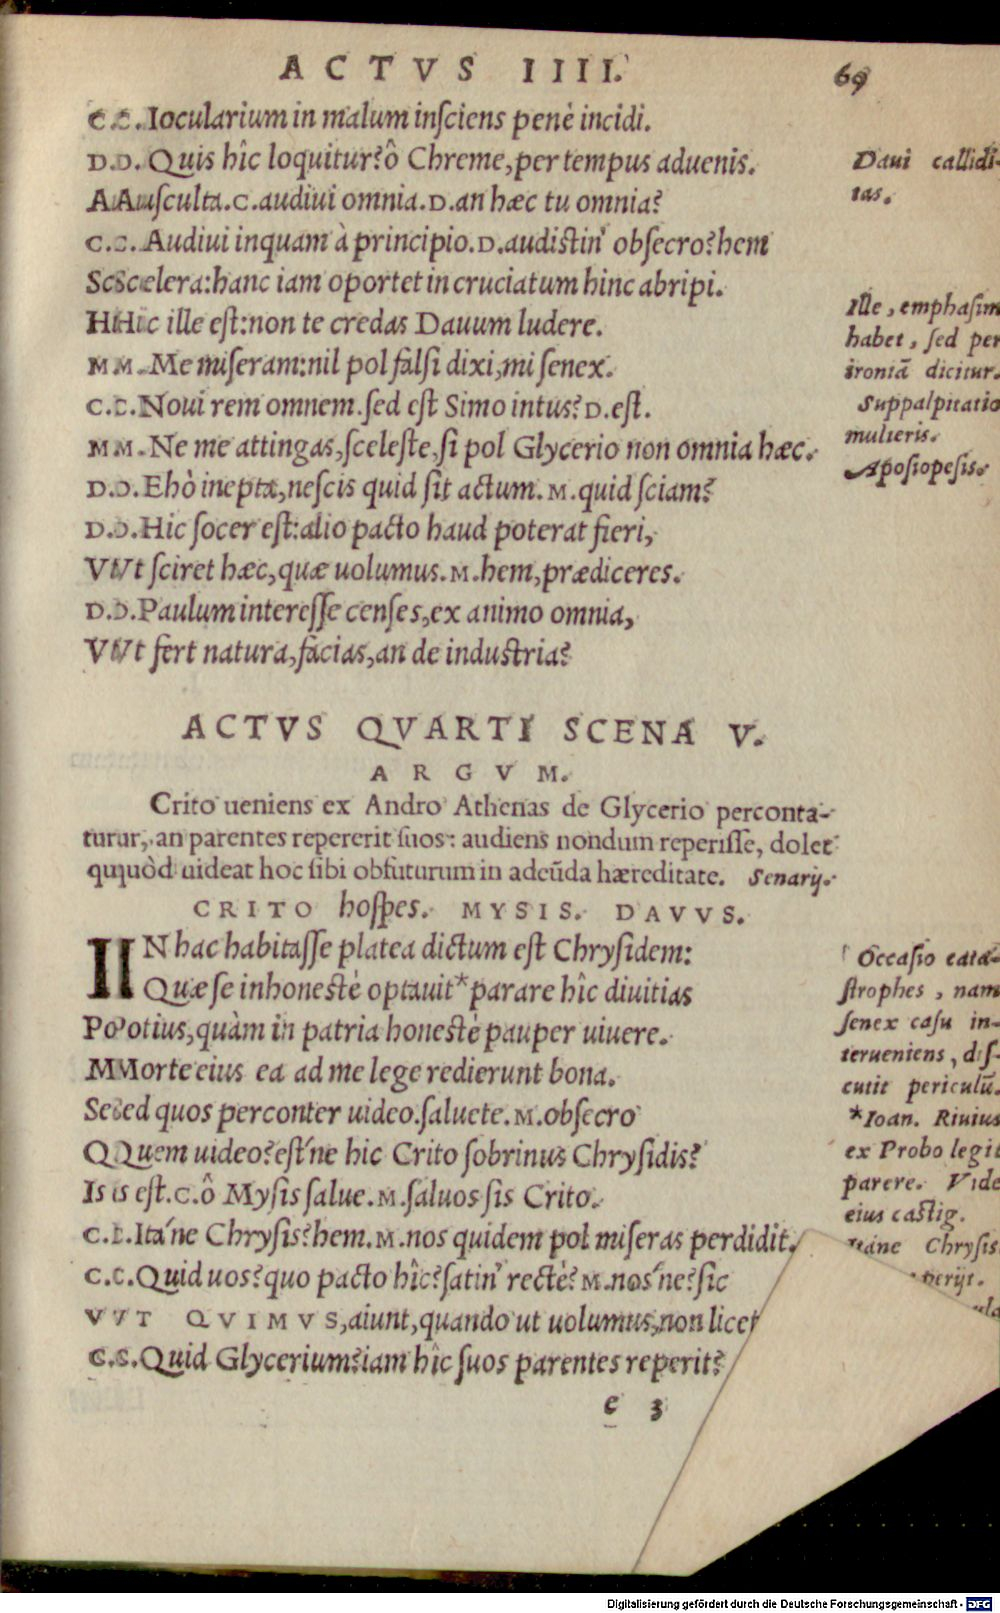 ACTVS IIII.
69
C. Iocularium in malum insciens penè incidi.
D. Quis hîc loquitur? ô Chreme, per tempus aduenis.
Ausculta. C. audiui omnia. D. an hæc tu omnia?
C. Audiui inquam à principio. D. audistin' obsecro? hem
Scelera: hanc iam oportet in cruciatum hinc abripi.
Hic ille est: non te credas Dauum ludere.
M. Me miseram: nil pol falsi dixi, mi senex.
C. Noui rem omnem. sed est Simo intus? D. est.
M. Ne me attingas, sceleste, si pol Glycerio non omnia hæc.
D. Ehò inepta, nescis quid sit actum. M. quid sciam?
D. Hic socer est: alio pacto haud poterat fieri,
Vt sciret hæc, quæ uolumus. M. hem, prædiceres.
D. Paulum interesse censes, ex animo omnia,
Vt fert natura, facias, an de industria?
Daui callidi-
tas.
Ille, emphasim
habet, sed per
ironiã dicitur.
Suppalpitatio
mulieris.
Aposiopesis.
ACTVS QVARTI SCENA V.
ARGVM.
Crito ueniens ex Andro Athenas de Glycerio perconta-
tur, an parentes repererit suos: audiens nondum reperisse, dolet
quòd uideat hoc sibi obfuturum in adeũda hæreditate. Senarij.
CRITO hospes. MYSIS. DAVVS.
IN hac habitasse platea dictum est Chrysidem:
Quæ se inhonestè optauit* parare hîc diuitias
Potius, quàm in patria honestè pauper uiuere.
Morte eius ea ad me lege redierunt bona.
Sed quos perconter uideo. saluete. M. obsecro
Quem uideo? est'ne hic Crito sobrinus Chrysidis?
Is est. C. ô Mysis salue. M. saluos sis Crito.
C. Ita'ne Chrysis? hem. M. nos quidem pol miseras perdidit.
C. Quid uos? quo pacto hîc? satin' rectè? M. nos'ne? sic
VT QVIMVS, aiunt, quando ut uolumus, non licet
C. Quid Glycerium? iam hîc suos parentes reperit?
Occasio cata-
strophes, nam
senex casu in-
terueniens, dis-
cutit periculũ.
*Ioan. Riuius
ex Probo legit
parere. Vide
eius castig.
Itáne Chrysis
perijt.
e 3
Digitalisierung gefördert durch die Deutsche Forschungsgemeinschaft - DFG